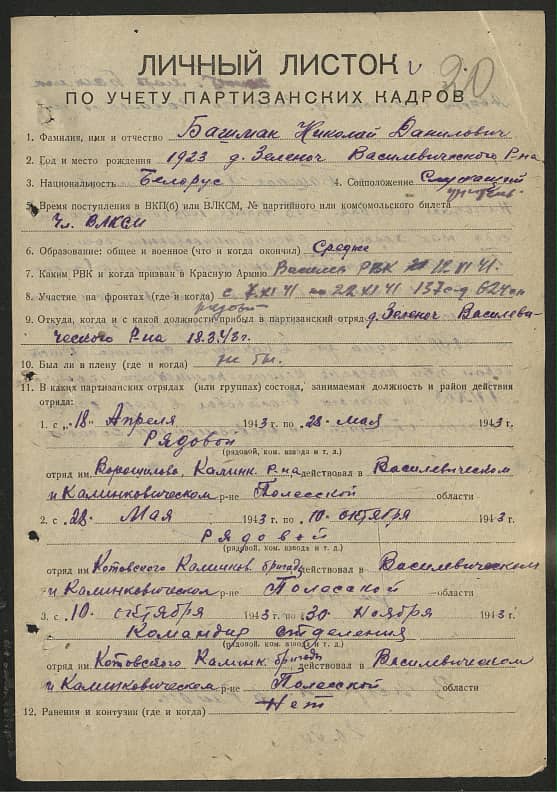 20
ЛИЧНЫЙ ЛИСТОК
ПО УЧЕТУ ПАРТИЗАНСКИХ КАДРОВ
1. Фамилия, имя и отчество Башмак Николай Данилович
2. Год и место рождения 1923 д. Зеленоч Василевичского Р-на
3. Национальность Белорус 4. Соцположение Служащий
5. Время поступления в ВКП(б) или ВЛКСМ, № партийного или комсомольского билета
Чл. ВЛКСМ
6. Образование: общее и военное (что и когда окончил) Средне
7. Каким РВК и когда призван в Красную Армию Василев РВК 12 XI 41.
8. Участие на фронтах (где и когда) с 7 XI 41 по 22 XI 41 137 с-д 624 сп
рядовой
9. Откуда, когда и с какой должности прибыл в партизанский отряд д. Зеленоч Василеви-
ческого Р-на 18.3.43 г.
10. Был ли в плену (где и когда) не был.
11. В каких партизанских отрядах (или группах) состоял, занимаемая должность и район действия
отряда:
1. с „18" Апреля 1943 г. по 28. мая 1943 г.
Рядовой
(рядовой, ком. взвода и т. д.)
отряд им. Ворошилово, Калинк. Р-на действовал в Василевическом
и Калинковическом р-не Полесской области
2. с 28. Мая 1943 г. по 10. октября 1943 г.
Рядовой
(рядовой, ком. взвода и т. д.)
отряд им. Котовского Калинков. бригады действовал в Василевическом
и Калинковическом р-не Полесской области
3. с 10. октября 1943 г. по 30 Ноября 1943 г.
Командир отделения
(рядовой, ком. взвода и т. д.)
отряд им. Котовского Калинк. бригады действовал в Василевическом
и Калинковическом р-не Полесской области
12. Ранения и контузии (где и когда) Нет